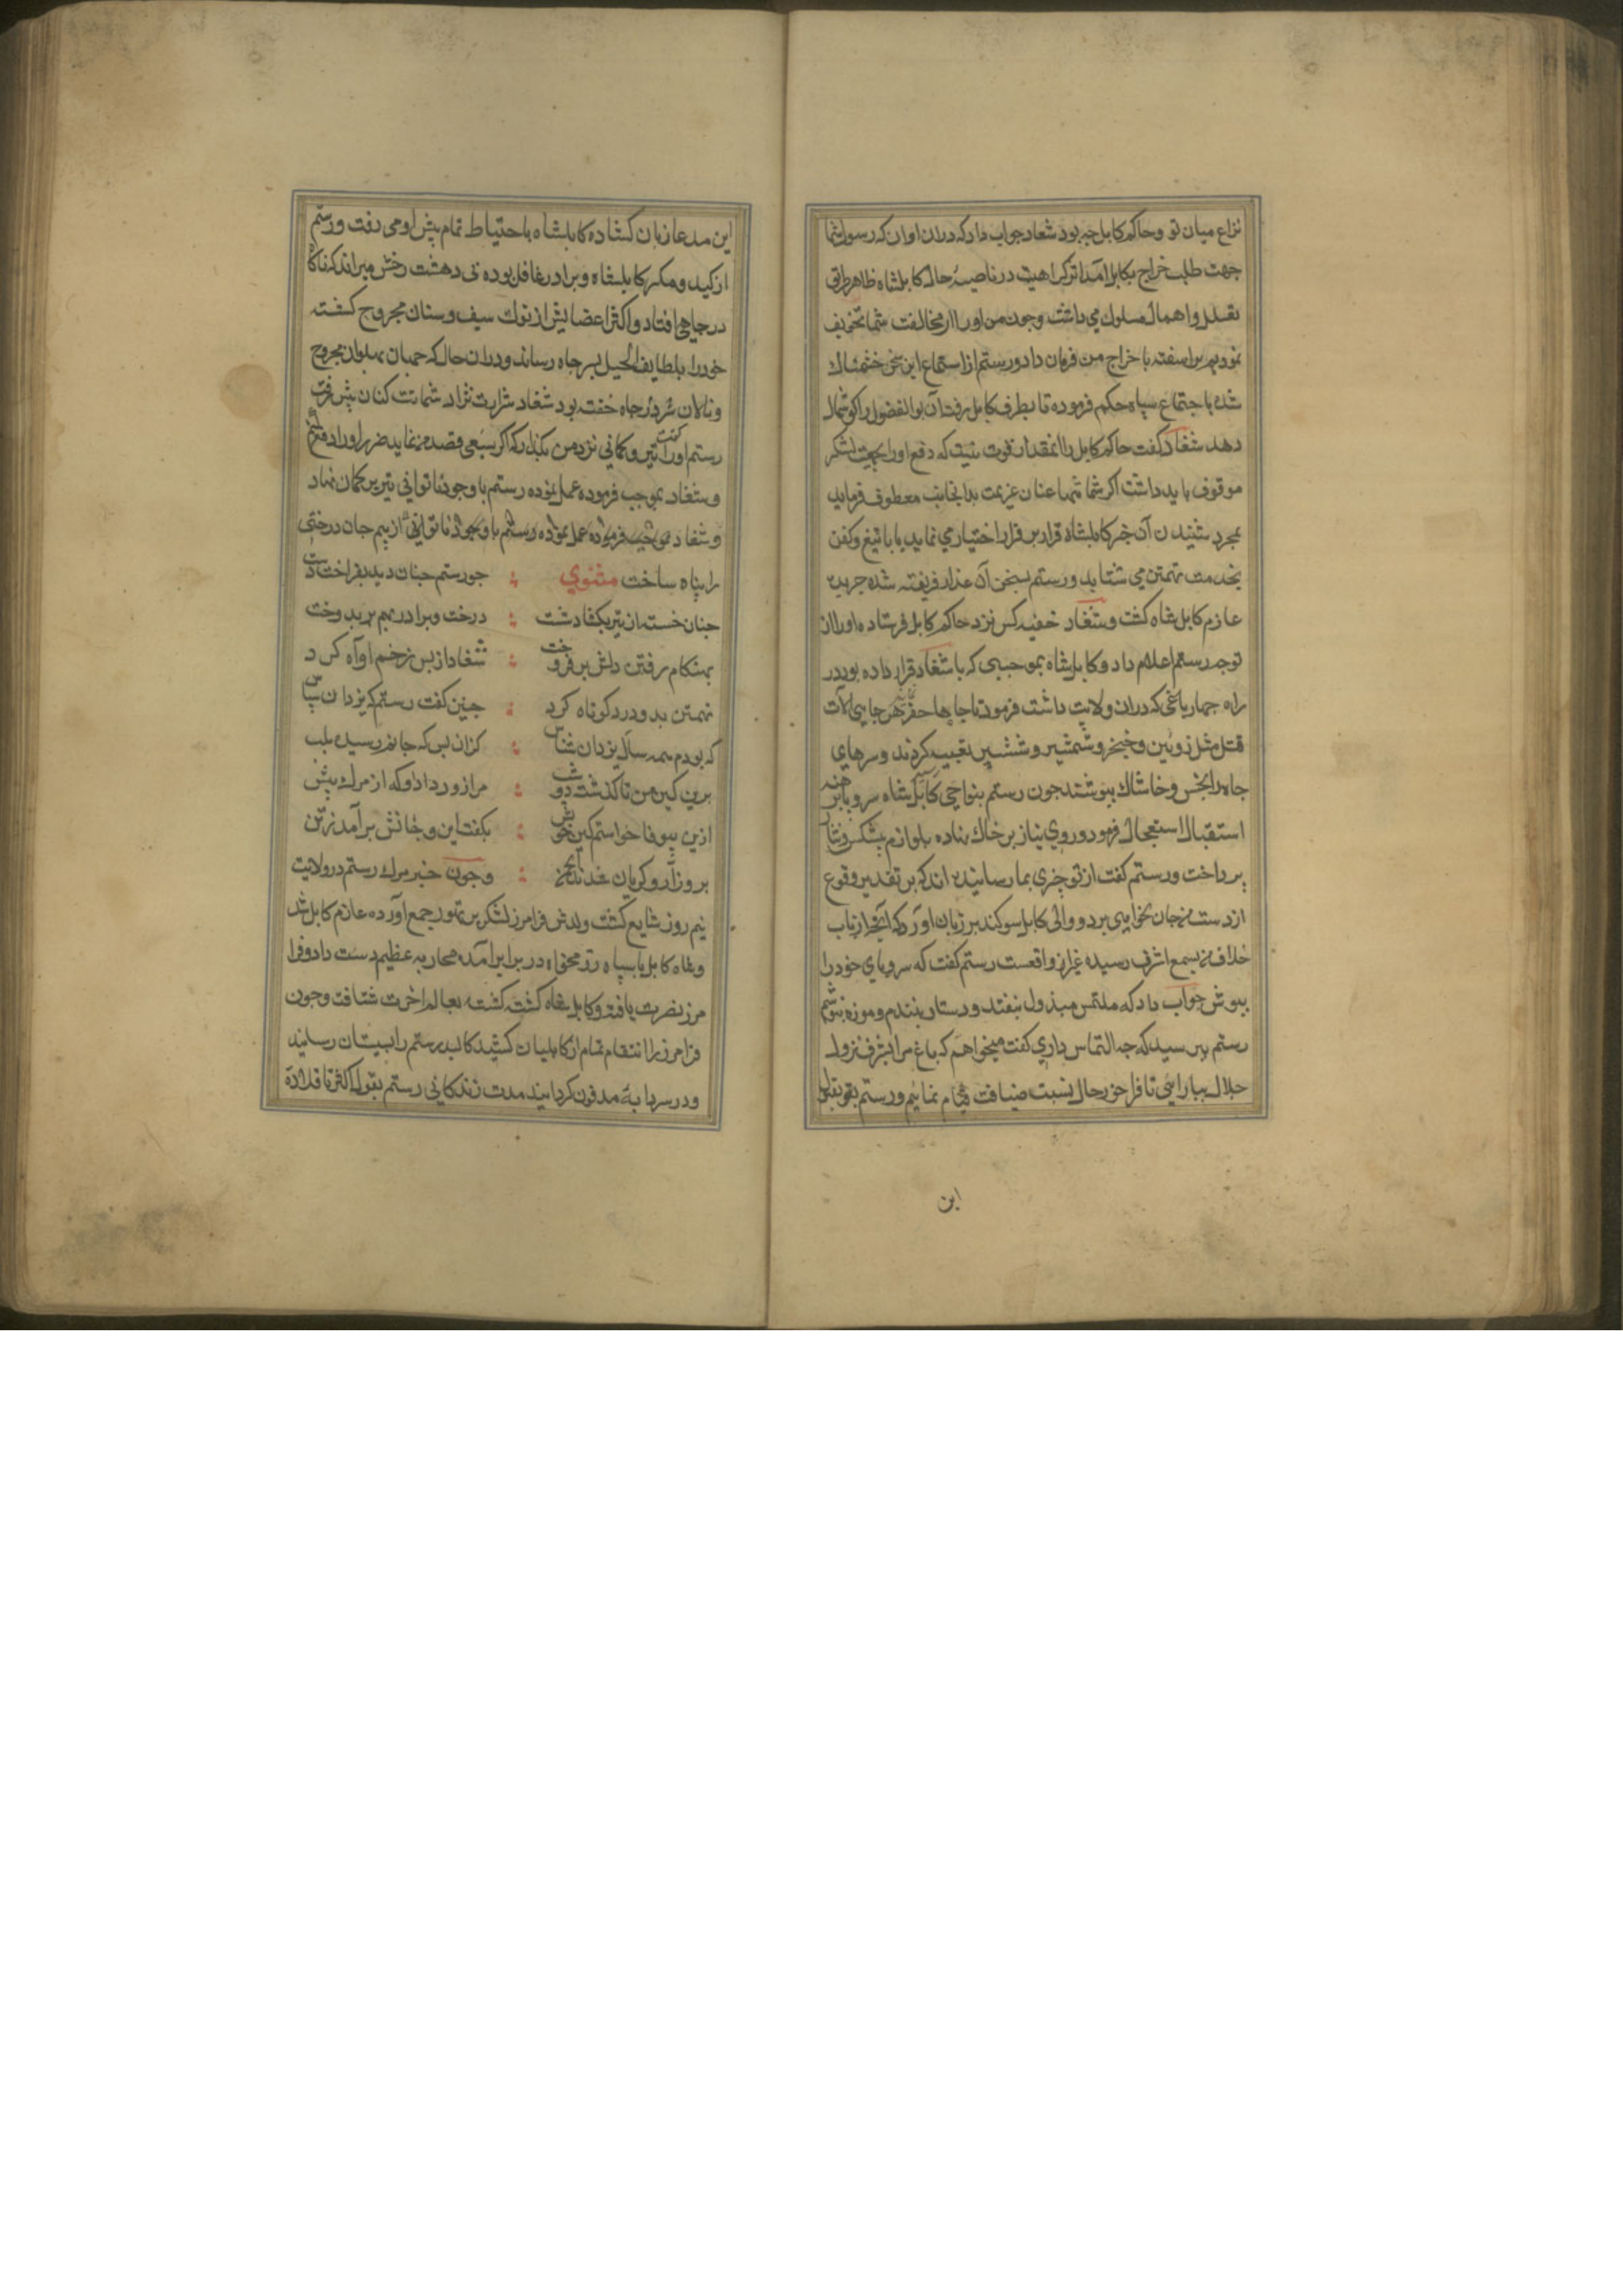 نزاع میان تو و حاکم کابل چه بود شغاد جواب داد که دران اوان که رسول شما
جهت طلب خراج بکابل آمد اثر کراهیت در ناصیهٔ حال کابلشاه ظاهر طریق
تعلل و اهمال مسلوک می داشت و چون من او را از مخالفت شما تخویف
نمودیم بر اسفته با خراج من فرمان داد و رستم از استماع این سخن خشمناک
شده باجتماع سپاه حکم فرموده تا بطرف کابل رفته آن بوالفضول را کوشمال
دهد شغاد کفت حاکم کابل را انقدان قوت نیست که دفع او را بجهت لشکر
موقوف باید داشت اکر شما تنها عنان عزیمت بدانجانب معطوف فرماید
بمجرد شنیدن آن خبر کابلشاه قرار بر قرار اختیار می نماید یا با تیغ و کفن
بخدمت تهمتن می شتابد و رستم بسخن آن غدار فریفته شده جریده
عازم کابل شاه کشت و شغاد خفیه کس نزد حاکم کابل فرستاده او را از
توجه رستم اعلام داد و کابل شاه بموجبی که با شغاد قرار داده بود در
راه چهار باغی که دران ولایت داشت فرمود تا چاهها حفر در هر چاهی آلات
قتل مثل زوبین و خنجر و شمشیر و ششپر تعبیه کردند و سرهای
چاه را بخس و خاشاک بپوشند جون رستم بنواحی کابل رسید کابلشاه سر و پا برهنه
استقبال استعجال فرمود و روی نیاز بر خاک نهاده بلوازم پیشکس و نثار
پرداخت و رستم کفت از تو چیزی بما رسانیده اند که بر تقدیر وقوع
از دست من جان نخواهی برد و والی کابل سوکند بر زبان اورد که آنچه از باب
خلاف من بسمع اشرف رسیده غیر از واقعست رستم کفت که سر و پای خود را
بپوش جواب داد که ملتمس مبذول نیفتد و دستار نبندم و موزه نپوشم
رستم پرسید که چه التماس داری کفت میخواهم که باغ مرا بشرف نزول
جلال بیارایی تا فراخور حال نسبت ضیافت قیام نمائیم و رستم بقول
این
این مدعا زبان کشاده کابلشاه باحتیاط تمام پیش او می رفت و رستم
از کید و مکر کابلشاه و برادر غافل بوده بی دهشت رخش میراند که ناکاه
در چاهی افتاد و اکثر اعضایش از نوک سیف و سنان مجروح کشته
خود را بلطایف الحیل بسر چاه رساند و دران حال که جهان پهلوان مجروح
و نالان بر سر چاه خفته بود شغاد شرارت نژاد شماتت کنان پیش رفت
رستم او را کفت تیر و کمانی نزد من بکذار که اکر سبعی قصد من نماید ضرر او را دفع کنم
و شغاد بموجب فرموده عمل نموده رستم با وجود ناتوانی تیر بر کمان نهاد
و شغاد بموجب فرموده عمل نموده رستم با وجود ناتوانی از بیم جان درختی
را پناه ساخت مثنوي جو رستم جنان دید بفراخت دست
جنان خسته ان تیر بکشاد شست درخت و برادر بهم بر بدوخت
بهنکام رفتن دلش بر فروخت شغاد از پس زخم او آه کرد
تهمتن بدو درد کوتاه کرد جنین کفت رستم که یزدان سپاس
که بودم همه سال یزدان شناس کزان پس که جانم رسیده بلب
برین کین من تا کذشت دو شب مرا زور داد او که از مرک پیش
ازین بیوفا خواستم کین خویش بکفت این و جانش برآمد ز تن
برو زار و کریان شدند انجمن و جون خبر مرک رستم در ولایت
نیم روز شایع کشت ولدش فرامرز لشکر پر تهور جمع آورده عازم کابل شد
و شاه کابل با سپاه رزمخواه در برابر آمده محاربه عظیم دست داد و فرا
مرز نصرت یافته و کابل شاه کشته کشته بعالم اخرت شتافت و جون
فرامرز را انتقام تمام از کابلیان کشید کالبد رستم را بسیستان رسانید
و در سردابه مدفون کردانید مدت زندکانی رستم بقول اکثر ناقلان